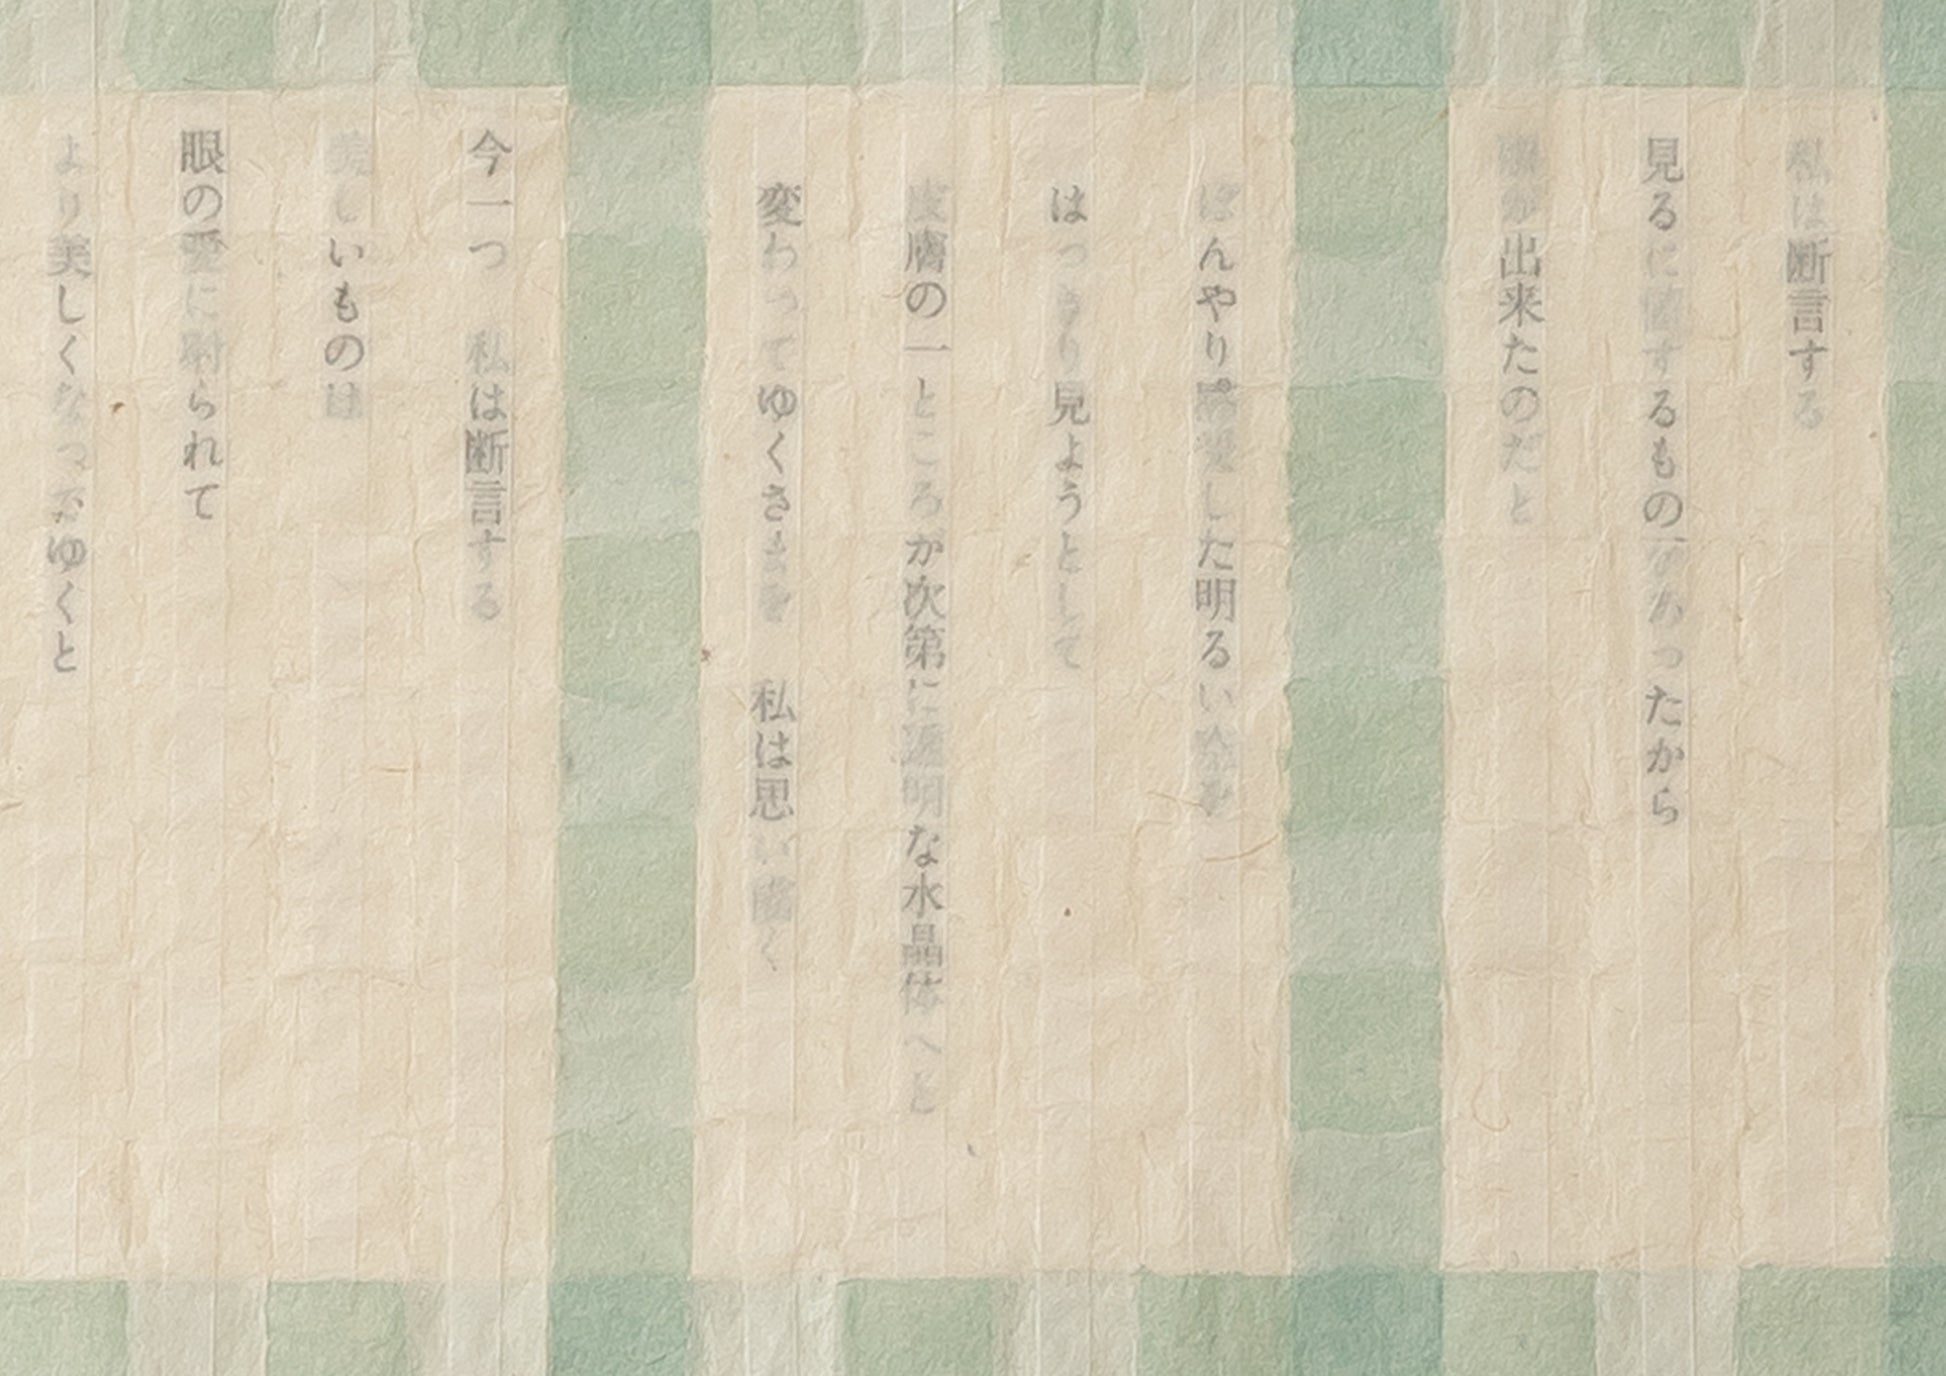 私は断言する
見るに値するものがあったから
眼が出来たのだと
ぼんやり感受した明るい光を
はっきり見ようとして
皮膚の一ところが次第に透明な水晶体へと
変わってゆくさまを　私は思い描く
今一つ　私は断言する
美しいものは
眼の愛に られて
より美しくなってゆくと